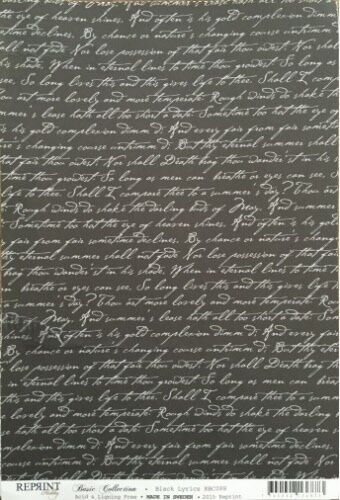 the eye of heaven shines, And often is his gold complexion dimm
By, chance or nature's changing course untrimm
all not fade Nor lose possession of that fair thou owest. Nor shall
his shade, When in eternal lines to time thou growest So long
see, So long lives this and this gives life to thee. Shall I comp
art more lovely and more temperate Rough winds do shake th
's lease hath all too short a date. Sometime too hot the eye o
is his gold complexion dimm d; And every fair from fair sometime
's changing course untrimm d; But thy eternal summer shall
that fair thou owest. Nor shall Death brag thou wander'st in his s
to time thou growest. So long as men can breathe or eyes can see. So
life to thee. Shall I compare thee to a summer's day? Thou art
Rough winds do shake the darling buds of May. And summer's
Sometime too hot the eye of heaven shines, And often is his gold
fair from fair sometime declines, By chance or nature's changing co
thy eternal summer shall not fade Nor lose possession of that fair
brag thou wander'st in his shade, When in eternal lines to time th
breathe or eyes can see. So long lives this and this gives life to
a summer's day? Thou art more lovely and more temperate Rough
buds of May. And summer's lease hath all too short a date.
shines, And often is his gold complexion dimm d; And every fair
By, chance or nature's changing course untrimm d; But thy et
lose possession of that fair thou owest. Nor shall Death brag thou
eternal lines to time thou growest So long as men can brea
this and this gives life to thee. Shall I compare thee to a summe
lovely and more temperate. Rough winds do shake the darling
lease hath all too short a date Sometime too hot the
gold complexion dimm d; And every fair from fair so
REPRINT
Basic Collection - Black Lyrics RBC099
Acid & Lignin Free - MADE IN SWEDEN - 2015 Reprint